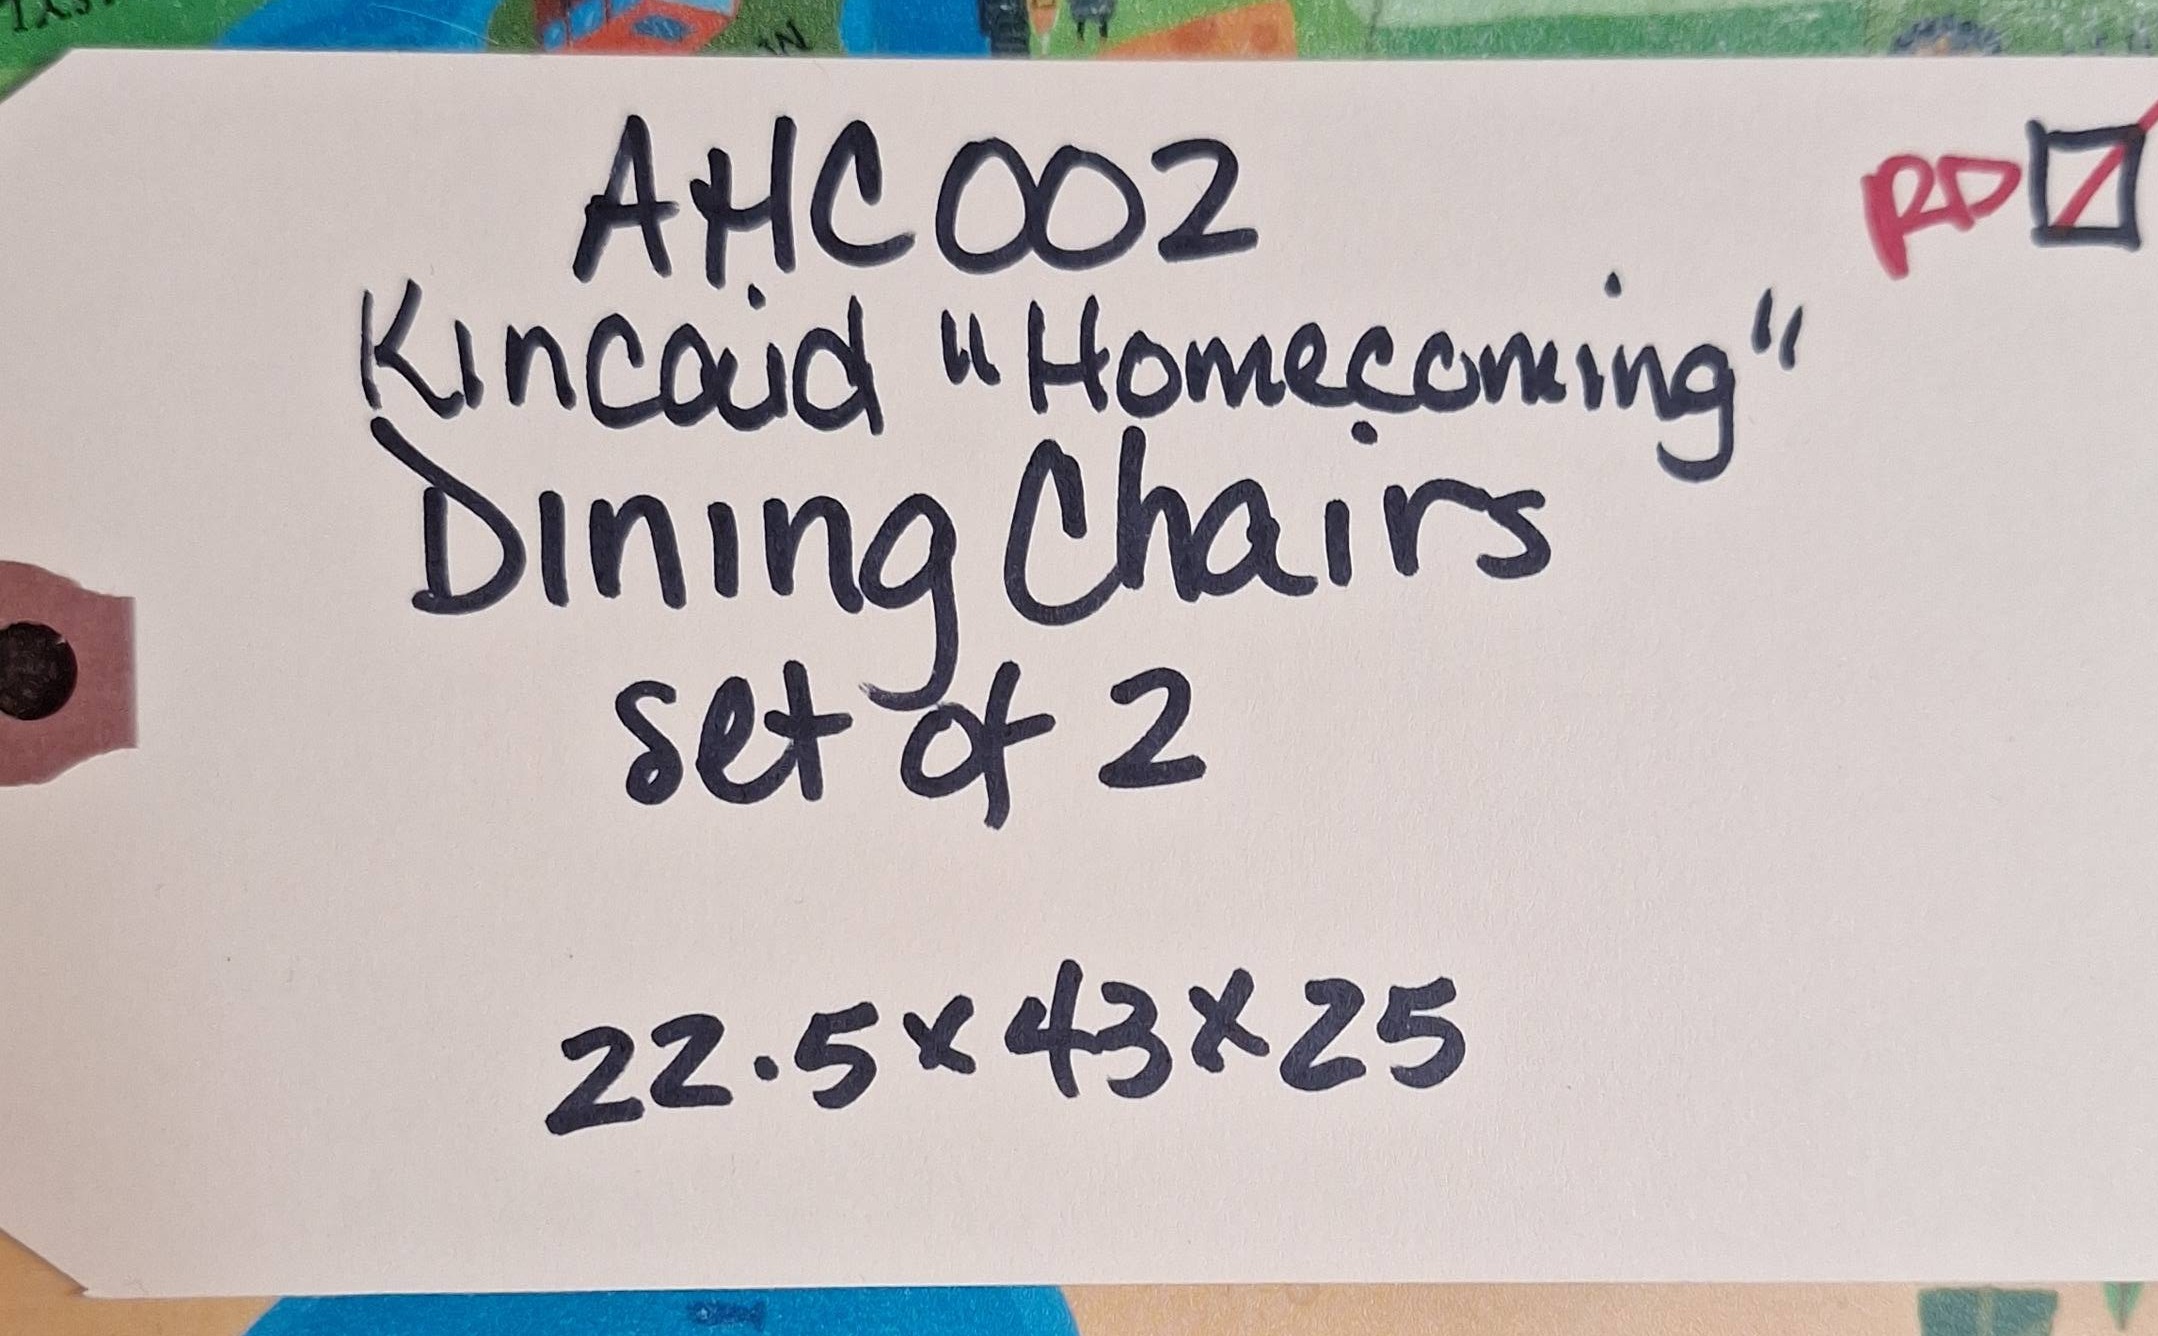 AHC002
RD
Kincaid "Homecoming"
Dining Chairs
set of 2
22.5x43x25